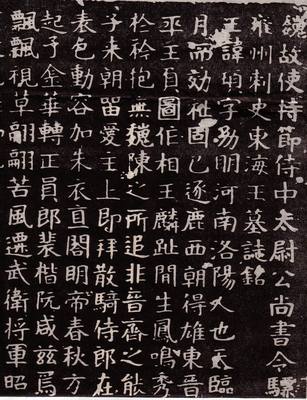 魏故使持節侍中太尉公尚書令驃
雍州刺史東海王墓誌銘
王諱頊字幼明河南洛陽人也臨
月而効社固已逐鹿西朝得雄東晉
平王負圖作相王麟趾間生鳳鳴秀
於衿抱無魏陳之所追非晉齊之能
子来朝留愛主上即拜散騎侍郎在
表色動容加朱衣直閤明帝春秋方
起子金華轉正員郎裴楷阮咸茲焉
飄飄視草翩翩苦風遷武衛將軍昭